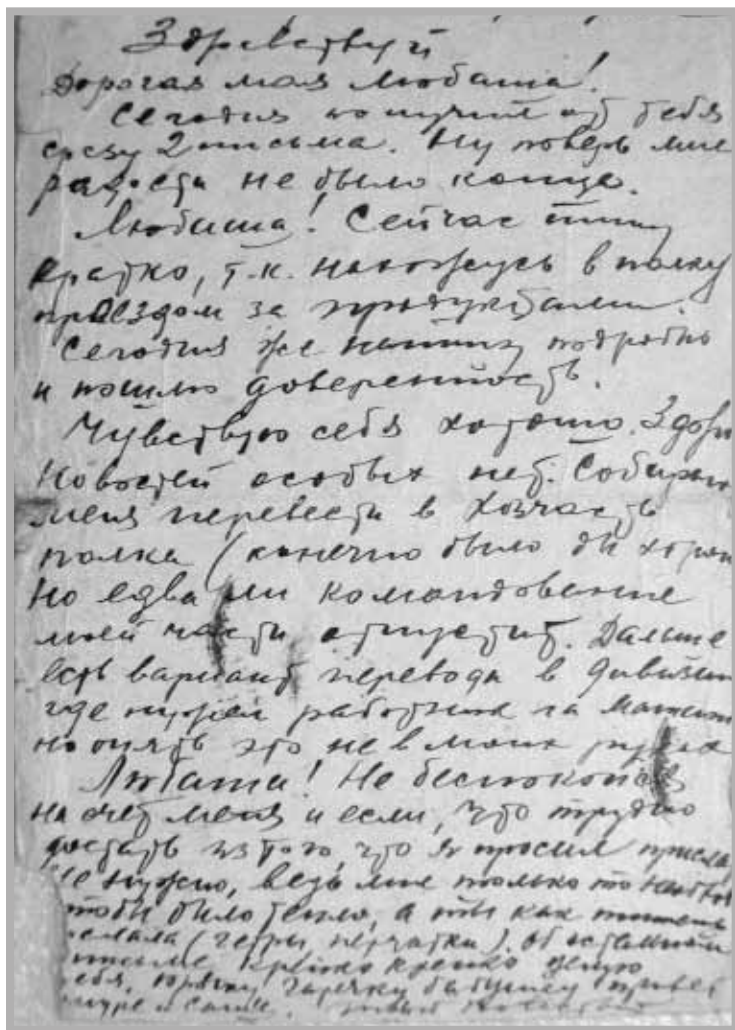 Здравствуй
Дорогая моя Любаша!
Сегодня получил от тебя
сразу 2 письма. Ну поверь мне
радости не было конца.
Любаша! Сейчас пишу
кратко, т.к. нахожусь в полку
проездом за продуктами.
Сегодня же напишу подробно
и пошлю доверенность.
Чувствую себя хорошо. Здоро
Новостей особых нет. Собираю
меня перевести в хозчасть
полка (конечно было бы хорош
но едва ли командование
моей части отпустит. Дальше
есть вариант перевода в дивизию
где нужен работник на
но опять это не в моих руках
Любаша! Не беспокойся
на счет меня и если, что трудно
достать из того, что я просил присла
не нужно, ведь мне только
чтобы было тепло, а ты как
(гетры, перчатки). Об остальном
письме. Крепко крепко целую
тебя, Юрочку, бабушку привет
Шуре и Саше.